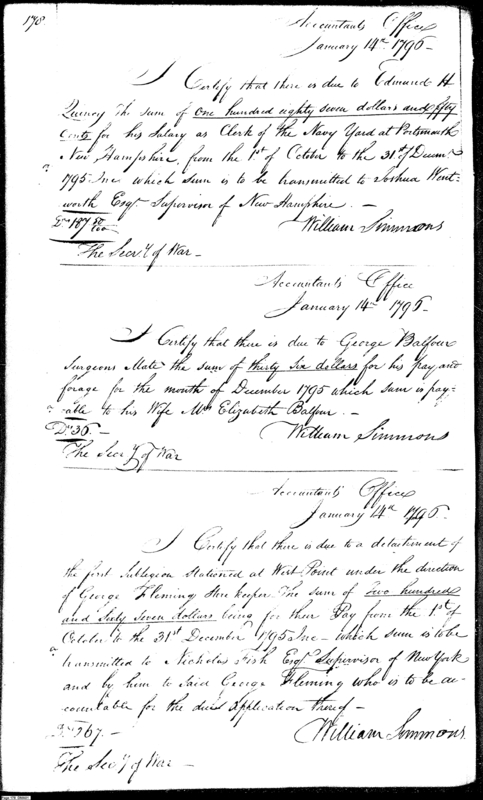 178
Accountants Office
January 14th 1796 –
I Certify that there is due to Edmund H
Quincy The sum of One hundred eighty seven dollars and fifty
Cents for his Salary as Clerk of the Navy Yard at Portsmouth
New Hampshire, from the 1st of October to the 31st of Decemr
1795 Inc – which sum is to be transmitted to Joshua Went-
worth Esqr Supervisor of New Hampshire. –
Drs 187 50/100
William Simmons
The Secry of War –
Accountants Office
January 14th 1796 –
I Certify that there is due to George Balfour
Surgeons Mate the sum of thirty six dollars for his pay and
forage for the month of December 1795 which sum is pay-
able to his Wife Mrs Elizabeth Balfour. –
Drs 36 –
William Simmons
The Secry of War
Accountants Office
January 14th 1796.
I Certify that there is due to a detachment of
the first Sublegion Stationed at West Point under the direction
of George Fleming Store keeper The sum of Two hundred
and Sixty Seven dollars being for their Pay from the 1st of
October to the 31st December 1795 Inc – which sum is to be
transmitted to Nicholas Fish Esqr Supervisor of New York
and by him to Said George Fleming who is to be ac-
countable for the due application thereof –
Drs 267. –
William Simmons
The Secy of War –